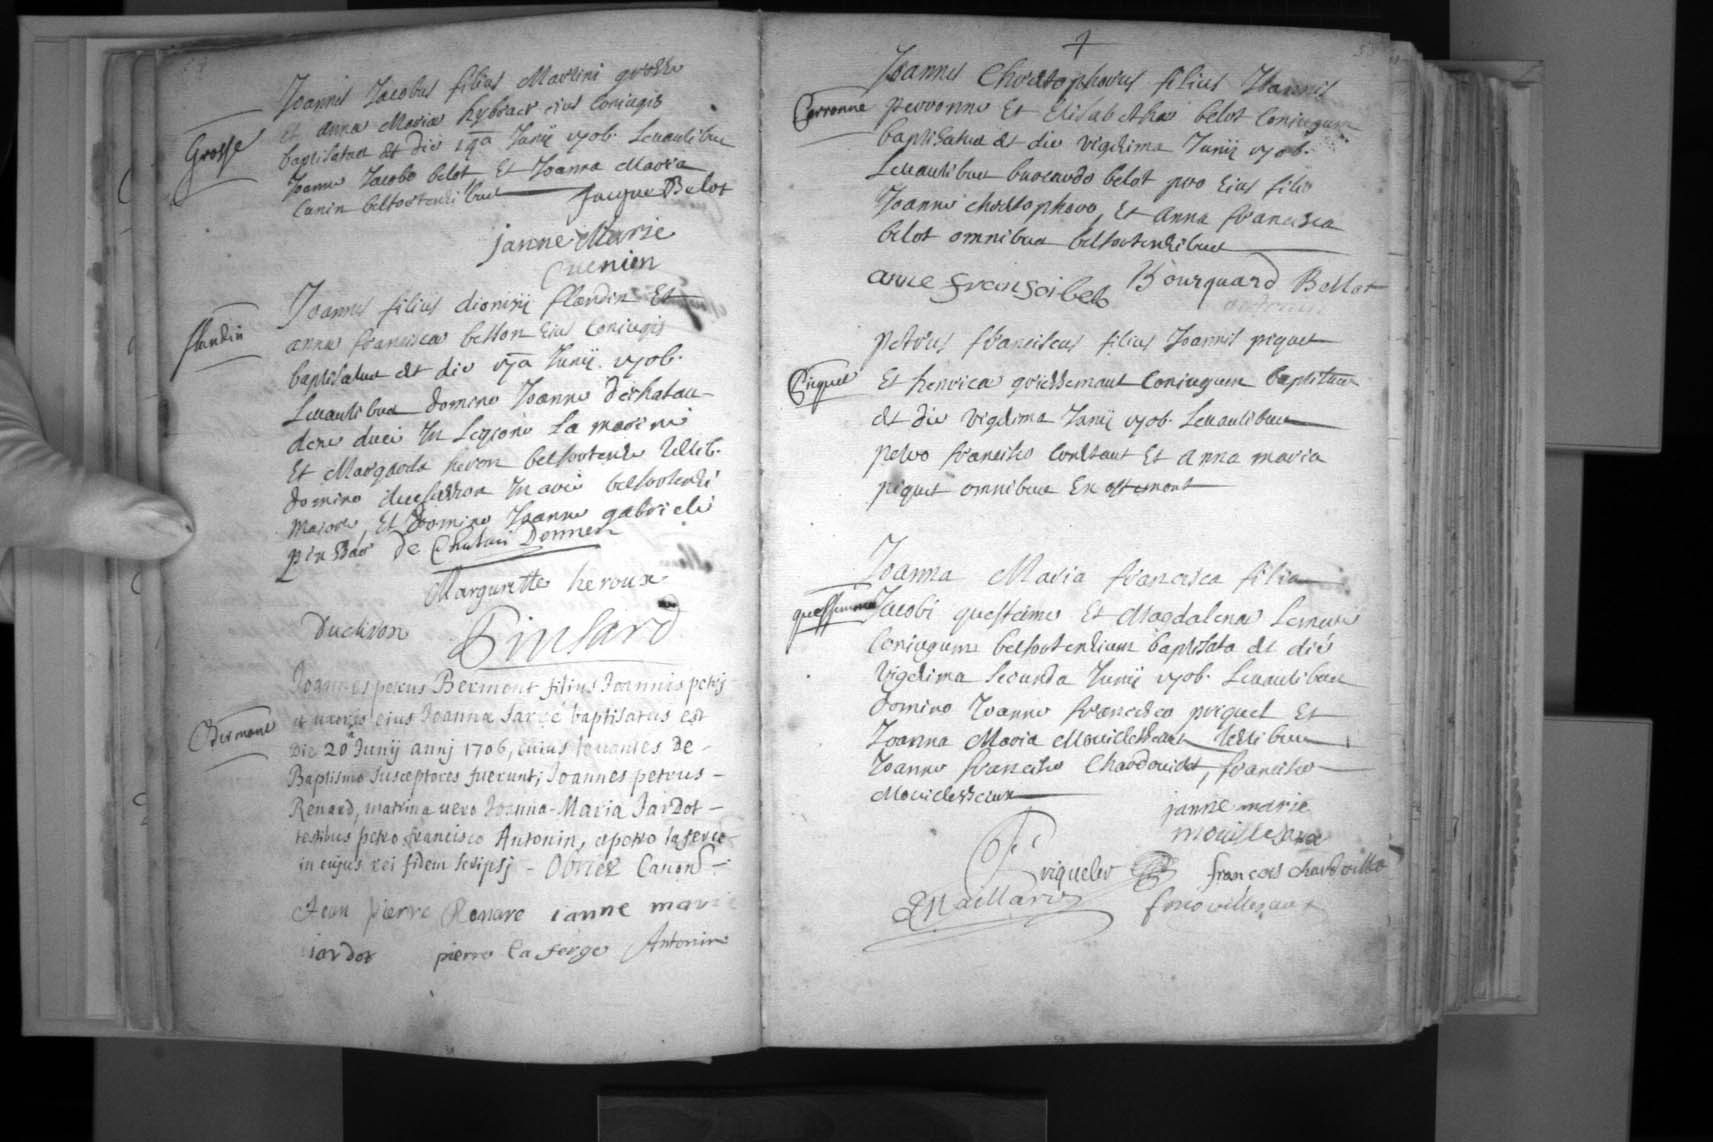 Grosse
Joannes Jacobus filius Martini grosse
et Anna Maria eius Coniugis
baptisatus est die Junij 1706. Levantibus
Joanne Jacobo belot Et Joanna Maria
Cunin belfortensibus Jacque Belot
janne Marie
Cuenien
flandin
Joannes filius dionisii flandin Et
anna francisca besson Eius Coniugis
baptisatus est die Junij 1706.
Levantibus domino Joanne de chatau
Duci In Legione La marine
Et Margareta heron belfortensi testib.
domino duchesson In avie belfortensi
maiore, Et Domino Joanne gabriele
pinssar de Chatau Donnen
Margueritte heroux
Duchson Pinsard
Bermont
Joannes petrus Bermont filius Joannis petrj
et uxoris eius Joanna Jarsé baptisatus est
Die 20a Junij annj 1706, cuius levantes de
Baptismo susceptores fuerunt, Joannes petrus
Renard, matrina vero Joanna-Maria Jardot
testibus petro francisco Antonin, et petro laferge
in cujus rei fidem scripsj - Obriez Canon
Jean pierre Renare ianne marie
iardot pierre la ferge Antonin
Perronne
Joannes Christophorus filius Joannis
perronne Et Elisabetha belot Coniugum
baptisatus est die vigesima Junij 1706.
Levantibus burcardo belot pro Eius filio
Joanne christophoro, Et Anna francisca
belot omnibus belfortensibus
anne fransoi belot Bourquard Bellot
Piquet
petrus franciscus filius Joannis piquet
Et henrica griessemant Coniugum baptisatus
est die vigesima Junij 1706. Levantibus
petro francisco Constant Et Anna maria
piquet omnibus Ex offemont
questemme
Joanna Maria francisca filia
Jacobi questeme Et Magdalena
Coniugum belfortensium baptisata est die
vigesima secunda Junij 1706. Levantibus
domino Joanne francisco priquet Et
Joanna Maria Mouillesseaux testibus
Joanne francisco Chardouillet, francisco
Mouillesseaux
janne marie
mouillesaux
priqueler françois chardouillet
Maillard f mouillesaux